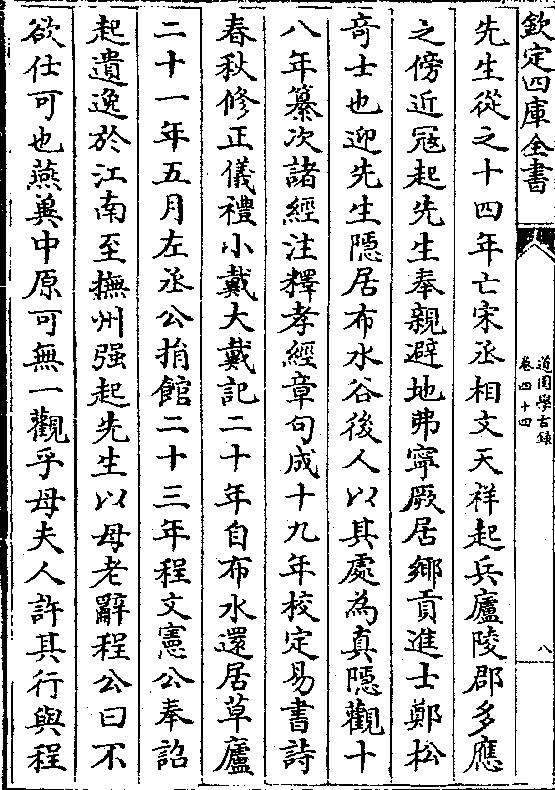 欽定四庫全書
道園學古録
卷四十四
八
先生從之十四年亡宋丞相文天祥起兵廬陵郡多應
之傍近冦起先生奉親避地弗寧厥居鄉貢進士鄭松
竒士也迎先生隱居布水谷後人以其處為真隱觀十
八年纂次諸經注釋孝經章句成十九年校定易書詩
春秋修正儀禮小戴大戴記二十年自布水還居草廬
二十一年五月左丞公捐館二十三年程文憲公奉詔
起遺逸於江南至撫州强起先生以母老辭程公曰不
欲仕可也燕兾中原可無一觀乎母夫人許其行與程